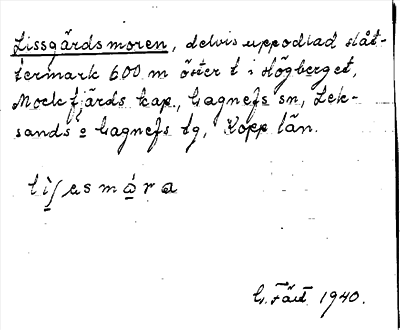 Lissgårdsmoren, delvis uppodlad slåt-
termark 600 m öster t i Högberget,
Mockfjärds kap., Gagnefs sn, Lek-
sands o Gagnefs tg, Kopp län.
G. Färt 1940.